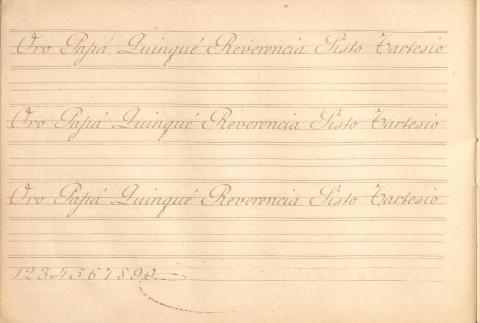 Oro Papá Quinqué Reverencia Sisto Tartesio
Oro Papá Quinqué Reverencia Sisto Tartesio
Oro Papá Quinqué Reverencia Sisto Tartesio
1234567890